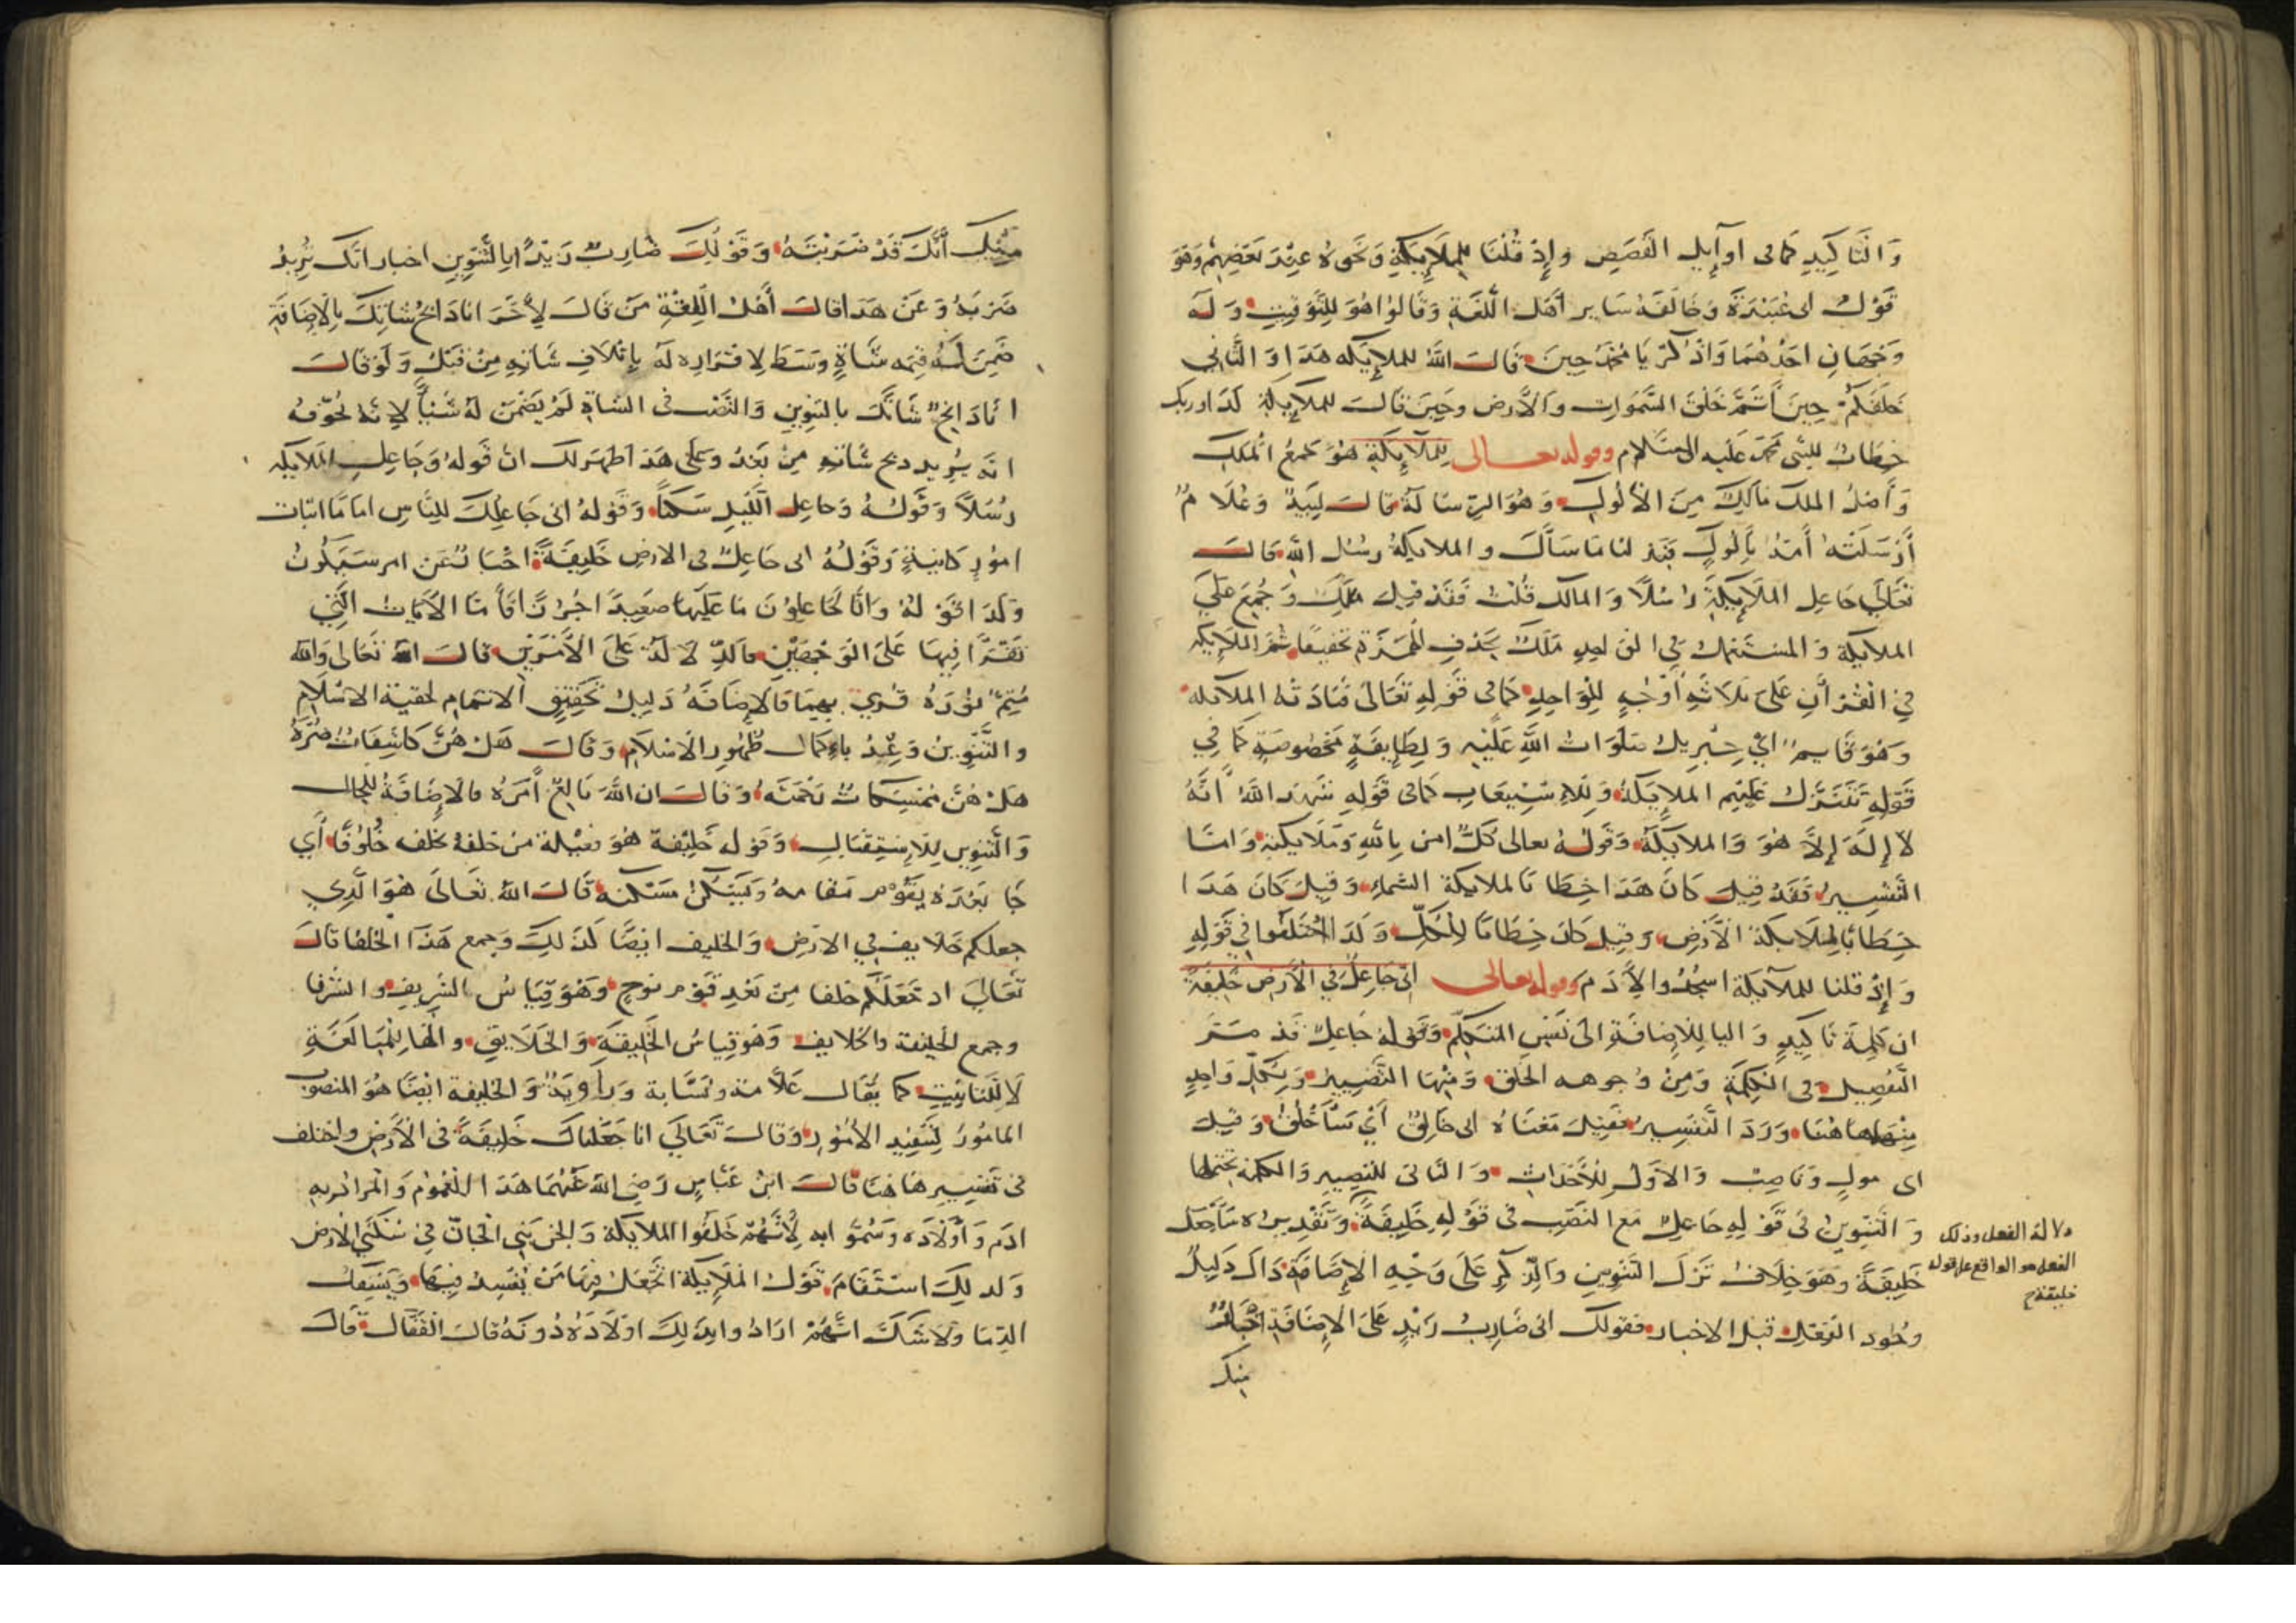 وَالتَّاكِيدِ كما فى اوآيل القَصَصِ وإِذْ قُلْنَا لِلْمَلَايِكَةِ وَنَحْوِهِ عِنْدَ بَعْضِهِمْ وَهَوَ
قَوْلُ ابى عُبَيْدَةَ وَخَالَفَهُ سَاير أَهْل اللُّغَةِ وَقَالُوا هُوَ لِلتَّوْقِيتِ وَلَه
وَجْهَانِ احَدُهُمَا وَاذْكُرْ يَا مُحَمَّدُ حِينَ قَالَ اللهُ للملايكه هَذَا وَالثَّانِي
خَلَقَكُمْ حِينَ أَتَمَّ خَلْقَ السَّمَوَاتِ وَالأَرض وحِينَ قَالَ للملايكة كذا وربك
خِطَابٌ للنبى محمد عَليه السَّلام وقوله تعالى لِلْمَلَايِكَةِ هُوَ جَمْعُ الْمَلَكِ
وَأَصْلُ الملك مَأْلَكٌ مِنَ الأَلُوكِ وَهُوَ الرِّسَالَةُ قال لَبِيدٌ وَغُلَامٌ
أَرْسَلَتْهُ أُمُّهُ بِأَلُوكٍ فَبَذَلْنَا مَا سَأَلَ والملايكةُ رسُل الله قال
تَعَالَى جَاعِل المَلَايِكَةِ رُسُلًا وَالمالك قُلِبَ فَقَدْ قِيلَ مَلْأَكٌ وَجُمِعَ عَلَى
الملايكة وَالمُسْتَعْمَلُ فِي الواحِدِ مَلَكٌ بحَذْفِ الْهَمْزَةِ تخفيفًا ثُمَّ الْمَلَايِكَة
فِي الْقُرْآنِ عَلَى ثَلَاثَةِ أَوْجُهٍ لِلْوَاحِدِ كَمَا فى قَوْلِهِ تَعَالَى فَنَادَتْهُ الملايكة
وَهُوَ قَايِمٌ أيْ جِبْرِيلُ صَلَوَاتُ اللَّهِ عَلَيْهِ وَلِطَايِفَةٍ مَخْصُوصَةٍ كَمَا فِي
قَوْلِهِ تَتَنَزَّلُ عَلَيْهِم الملَايِكَةُ وَلِلاسْتِيعَابِ كَمَا فى قَوْلِهِ شَهِدَ اللَّهُ أَنَّهُ
لَا إِلَهَ إِلَّا هُوَ وَالملايكةُ وَقَولُهُ تعالى كُلٌّ امَن بِاللَّهِ وَمَلَايكتِهِ وَامّا
التَّفْسِيرُ فَقَدْ قِيلَ كَانَ هَذَا خِطَابًا لملايكة السَّمَاءِ وَقِيلَ كَانَ هَذَا
خِطَابًا لِمَلَايكة الأَرْضِ وَقِيلَ كَانَ خِطَابًا لِلْكُلِّ وَكَذَا اخْتَلَفُوا فِي قَوْلِهِ
وَإِذْ قلنا للملآيكة اسْجُدُوا لآدَم وقوله تعالى انّى جَاعِلٌ فِي الأَرْضِ خَلِيفَةً
ان كَلِمَة تَاكِيدٍ وَاليا لِلإِضَافَةِ الى نَفْسِ المتَكَلِّم وَقَوله جَاعِلٌ قَدْ مَرَّ
التَّفْصِيل فى الكَلِمَةِ وَمِنْ وُجوهه الخَلْق وَمِنْهَا التَّصْيِيرُ وَبِكُلِّ وَاحِدٍ
مِنْهما هَاهُنَا وَرَدَ التَّفْسِيرُ فَقِيلَ مَعْنَاهُ انى خَالِقٌ أَيْ سَأَخْلُقُ وَقِيلَ
اى مولٍ وَنَاصِبٌ وَالأوَلُ لِلأَحْدَاثِ وَالثانى للتصِييرِ وَالكلمة تحتملها
وَالتَّنْوِينُ فى قَوْلِهِ جَاعِلٌ مَعَ النَصْبِ فى قَوْلِهِ خَلِيفَةً وَتَقْدِيرُهُ سَأَجْعَلُ
خَلِيفَةً وَهَوَ خِلَافُ تَرْكِ التَنْوِينِ وَالذِّكْرِ عَلَى وَجْهِ الإِضَافَةِ ذَاكَ دَلِيلُ
وجُود الفِعْلِ قبل الاخبار فقولك انى ضَارِبُ زَيْدٍ عَلَى الإِضَافَةِ اخْبَارٌ
منك
دلالة الفعل وذلك
الفعل هو الواقع على قوله
خليفة ح
مِنْكَ أَنَّكَ قَدْ ضَرَبْتَهُ وَقَوْلُكَ ضَارِبٌ زَيْدًا بِالتَّنْوِينِ اخبار انَّك تُرِيدُ
ضَرْبَهُ وَعَنْ هَذَا قال أَهْلُ الْفِقْهِ مَنْ قَالَ لِآخَرَ انا ذَابِحُ شَاتِكَ بِالإِضَافَةِ
ضَمِنَ لَهُ قِيمَه شَاةٍ وَسَطٍ لاقرَاره لَهُ بِإِتْلَافِ شَاتِهِ مِنْ قَبْلُ وَلَوْ قَالَ
انَا ذَابِحٌ شَاتَكَ بالتنوِينِ وَالنَّصْبِ فى الشاةِ لَمْ يَضْمَنْ لَهُ شَيْئًا لِانَّهُ يُخَوِّفُهُ
انّه يُرِيد ذبح شَاتهِ مِنْ بَعْدُ وعَلَى هَذا ظهر لك ان قَولهُ وَجَاعِلِ الملايكه
رُسُلًا وَقَولُهُ وَجاعِل اللَّيْلِ سَكَنًا وَقَولهُ انى جَاعِلُكَ لِلنَّاسِ امَامًا اثبات
امُورٍ كَاينةٍ وَقَوْلُهُ انى جَاعِلٌ فى الارض خَلِيفَةً اخْبَارٌ عَن امر سَيَكُونُ
وَكَذَا قَوْلُهُ وَانَّا لَجَاعِلُونَ مَا عَلَيْهَا صَعِيدًا جُرُزًا فَأَمّا الآيَاتُ الَّتِي
تُقْرَأ فِيهَا عَلَى الوَجْهَيْنِ فالدِّلَالَةُ عَلَى الأَمْرَيْنِ قال الله تَعَالى وَاللهُ
مُتِمُّ نُوْرِهِ قُرِيَ بِهِمَا فَالإِضَافَهُ دَلِيلُ تَحْقِيقِ الاتمام لحقية الاسْلام
والتَّنْوِينُ وَعْدٌ بِاِكمال ظُهُورِ الاسْلَامِ وَقَالَ هَلْ هُنَّ كَاشِفَاتُ ضُرِّهِ
هَلْ هُنَّ مُمْسِكَاتُ رَحْمَتِه وَقالَ ان اللهَ بَالِغُ أَمْرِهِ فالإِضَافَةُ لِلْحال
وَالتَّنْوِين لِلاسْتِقْبَالِ وَقَوله خَلِيْفةً هُوَ فعيلة من خلفه يخلف خُلُوفًا أَي
جَا بَعْدَهُ يَقُوْم مَقامهُ وَيَسْكُنُ مَسْكنه قَالَ اللهُ تَعَالَى هُوَ الَّذِي
جعلكم خلايف فى الارْضِ وَالخليف ايضًا كَذَلِكَ وَجمع هَذَا الخُلفَا قَالَ
تَعَالَى اذ جَعَلَكُم خلفا مِن بَعْدِ قَوْم نوحٍ وَهُوَ قِيَاسُ الشَرِيفِ والشُرفا
وجمع الخليفة الخلايف وَهُوَ قِياسُ الخَلِيقَةِ وَالخَلَايقِ والْهَا لِلْمُبَالَغَةِ
لَا لِلتَّانِيثِ كما يُقَال عَلَّامَة ونَسَّابة وَرَاوِيَةٌ وَالخليفة ايضًا هُوَ المنصوب
المامُورُ لِتَنْفِيذِ الأُمُورِ وَقال تَعَالَى انا جَعَلْناكَ خَلِيفَةً فى الأَرْضِ واختلف
فى تَفْسِيرِ هَاهُنَا قَالَ ابن عَبَّاسٍ رَضِيَ اللهُ عَنْهُمَا هَذَا للعُمُوْم وَالمراد بِهِ
ادَم وَأَوْلَادُه وَسُمُّوا به لِأَنَّهُمْ خَلَفُوا الملايكة وَالجن بَنِي الجَانّ فِي سُكْنَى الارضِ
وَلذلِكَ اسْتَقَامَ قَوْلُ الملَايِكة اَتَجْعَلُ فِيهَا مَنْ يُفْسِدُ فِيهَا وَيَسْفِكُ
الدِّمَا وَلَا شَكَّ انَّهُمْ ارَادُوا بِذَلِكَ اوْلَادَهُ دُونَهُ قال القَفَّال قَالَ